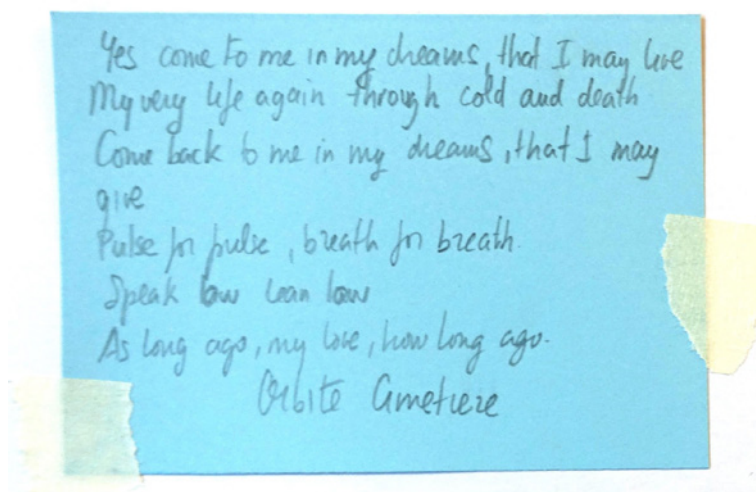 Yes come to me in my dreams, that I may live
My very life again through cold and death
Come back to me in my dreams, that I may
give
Pulse for pulse, breath for breath.
Speak low lean low
As long ago, my love, how long ago.
Orbite Cimetiere